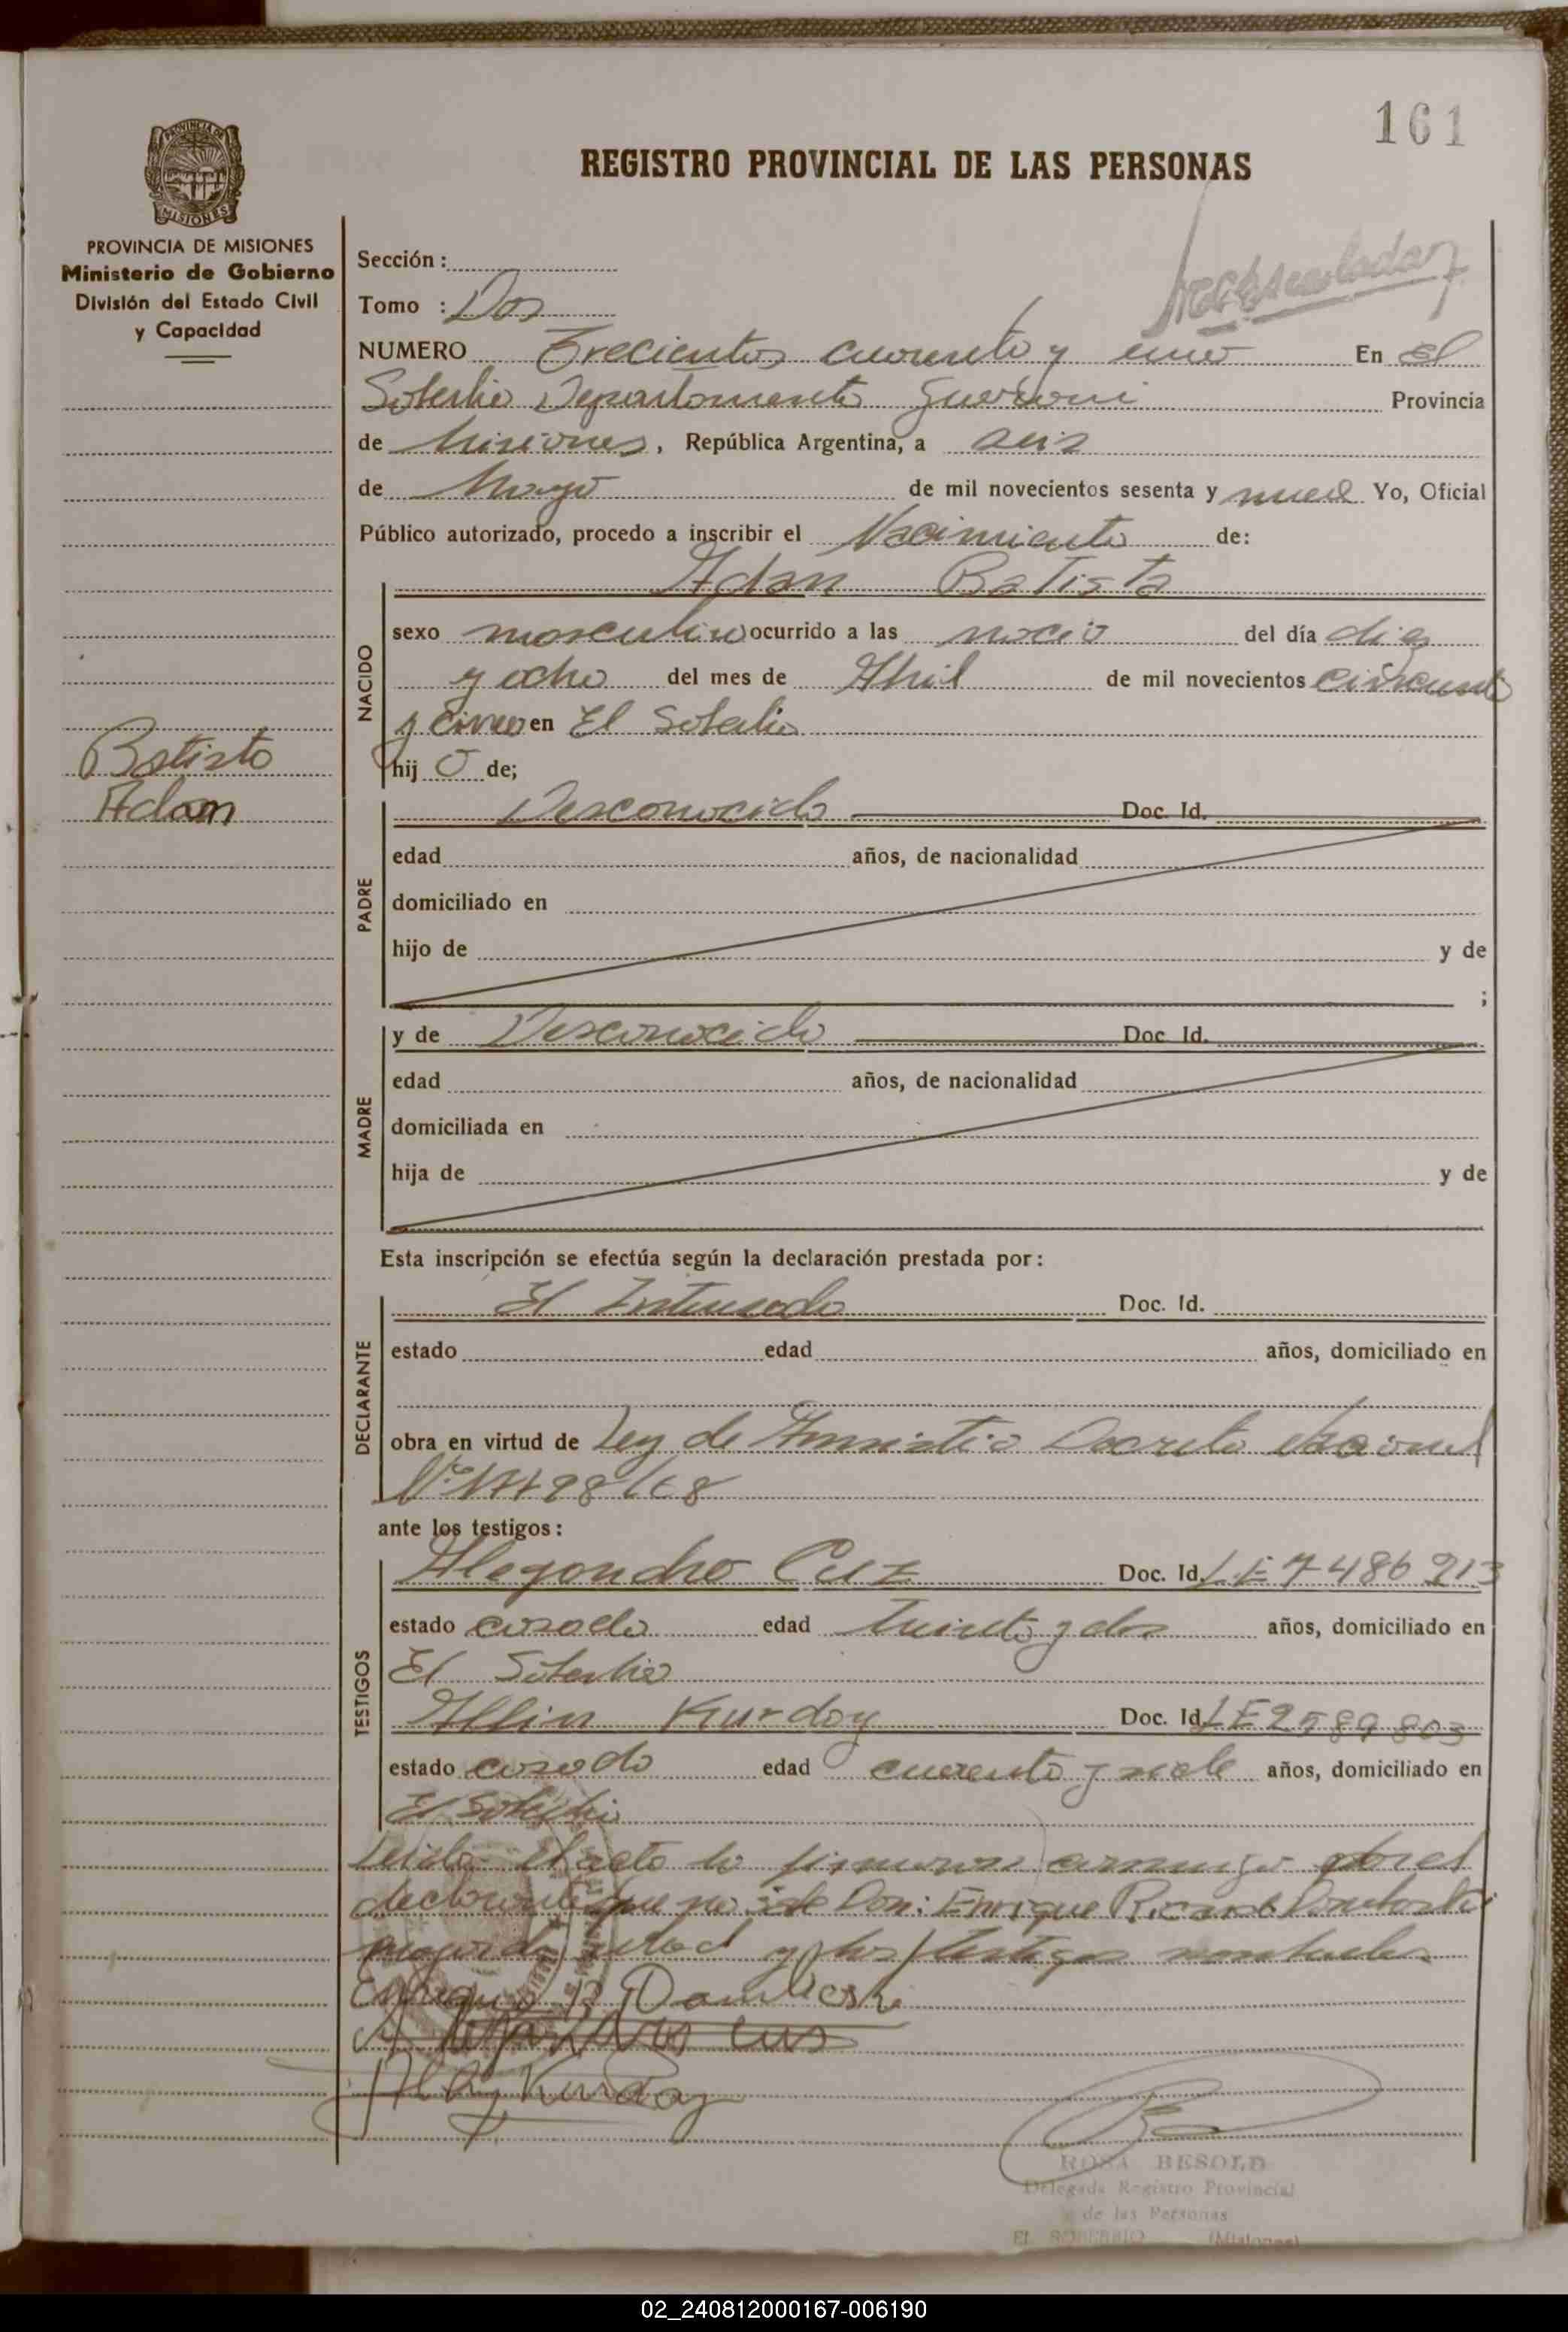 161
REGISTRO PROVINCIAL DE LAS PERSONAS
PROVINCIA DE MISIONES
PROVINCIA DE MISIONES
Ministerio de Gobierno
División del Estado Civil
y Capacidad
Sección :
Tomo : Dos
NUMERO Trecientos cuarenta y uno En El
Soberbio Departamento Guarani Provincia
de Misiones, República Argentina, a seis
de Mayo de mil novecientos sesenta y nueve Yo, Oficial
Público autorizado, procedo a inscribir el Nacimiento de:
Adan Batista
NACIDO
sexo masculino ocurrido a las del día diez
y ocho del mes de Abril de mil novecientos cincuenta
y cinco en El Soberbio
hij o de;
Batista
Adan
PADRE
Desconocido Doc. Id.
edad años, de nacionalidad
domiciliado en
hijo de y de
;
MADRE
y de Desconocido Doc. Id.
edad años, de nacionalidad
domiciliada en
hija de y de
Esta inscripción se efectúa según la declaración prestada por:
DECLARANTE
El Interesado Doc. Id.
estado edad años, domiciliado en
obra en virtud de Ley de Amnistia Decreto Nacional
ante los testigos:
TESTIGOS
Alegandro Cuz Doc. Id. LE 7486213
estado casado edad treinta y dos años, domiciliado en
El Soberbio
Albin Kurdoy Doc. Id. LE 2589803
estado casado edad cuarenta y siete años, domiciliado en
El Soberbio
Leida el acta la firmaron conmigo por el
declarante que no sabe Don: Enrique Ricardo
mayor de edad y los testigos nombrados
Enrique R
Kurday
ROSA BESOLD
Delegada Registro Provincial
de las Personas
EL SOBERBIO (Misiones)
02_240812000167-006190